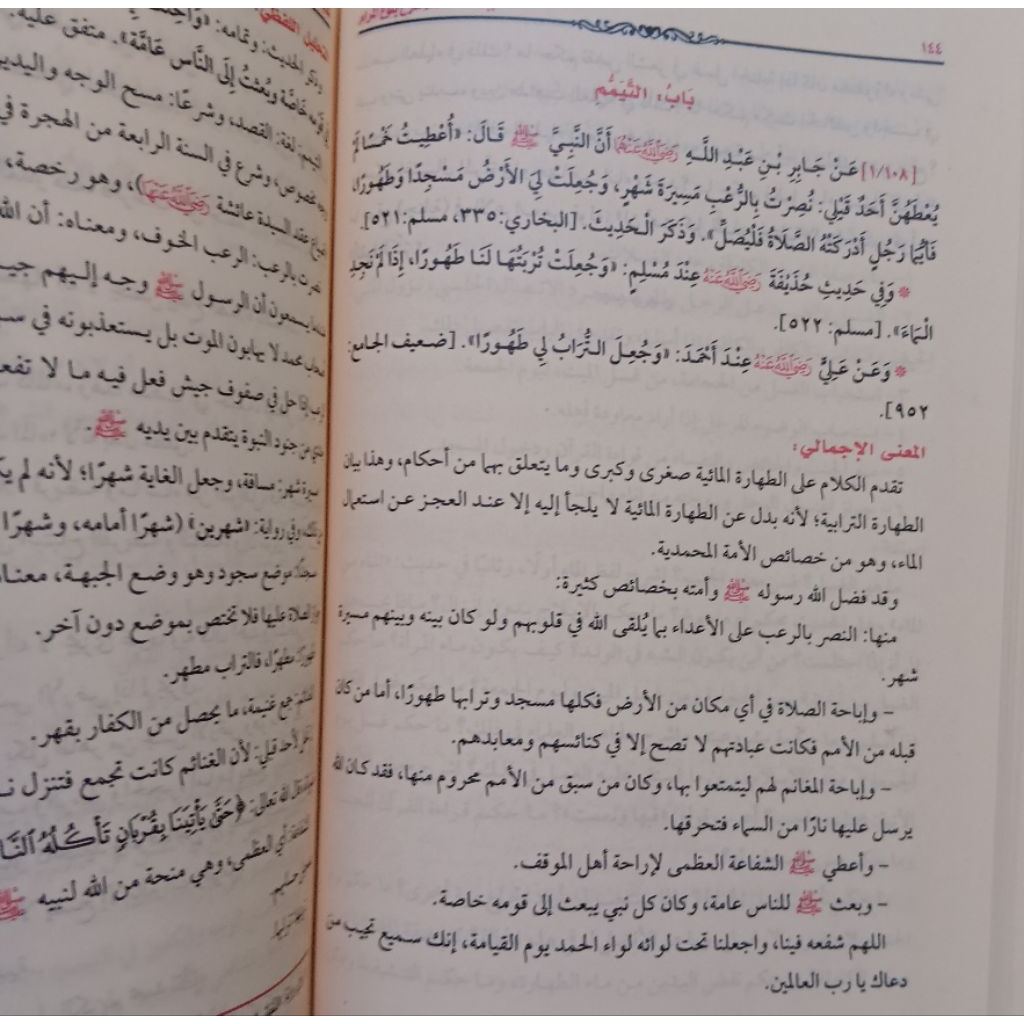 ١٤٤
بَابُ: التَّيَمُّمِ
[١/١٠٨] عَنْ جَابِرِ بْنِ عَبْدِ اللَّهِ رَضِيَ اللَّهُ عَنْهُمَا أَنَّ النَّبِيَّ ﷺ قَالَ: «أُعْطِيتُ خَمْسًا لَمْ
يُعْطَهُنَّ أَحَدٌ قَبْلِي: نُصِرْتُ بِالرُّعْبِ مَسِيرَةَ شَهْرٍ، وَجُعِلَتْ لِيَ الأَرْضُ مَسْجِدًا وَطَهُورًا،
فَأَيُّمَا رَجُلٍ أَدْرَكَتْهُ الصَّلَاةُ فَلْيُصَلِّ». وَذَكَرَ الْحَدِيثَ. [البخاري: ٣٣٥، مسلم: ٥٢١].
* وَفِي حَدِيثِ حُذَيْفَةَ رَضِيَ اللَّهُ عَنْهُ عِنْدَ مُسْلِمٍ: «وَجُعِلَتْ تُرْبَتُهَا لَنَا طَهُورًا، إِذَا لَمْ نَجِدِ
الْمَاءَ». [مسلم: ٥٢٢].
* وَعَنْ عَلِيٍّ رَضِيَ اللَّهُ عَنْهُ عِنْدَ أَحْمَدَ: «وَجُعِلَ التُّرَابُ لِي طَهُورًا». [ضعيف الجامع:
٩٥٢].
المعنى الإجمالي:
تقدم الكلام على الطهارة المائية صغرى وكبرى وما يتعلق بهما من أحكام، وهذا بيان
الطهارة الترابية؛ لأنه بدل عن الطهارة المائية لا يلجأ إليه إلا عند العجز عن استعمال
الماء، وهو من خصائص الأمة المحمدية.
وقد فضل الله رسوله ﷺ وأمته بخصائص كثيرة:
منها: النصر بالرعب على الأعداء بما يُلقى الله في قلوبهم ولو كان بينه وبينهم مسيرة
شهر.
– وإباحة الصلاة في أي مكان من الأرض فكلها مسجد وترابها طهورًا، أما من كان
قبله من الأمم فكانت عبادتهم لا تصح إلا في كنائسهم ومعابدهم.
– وإباحة المغانم لهم ليتمتعوا بها، وكان من سبق من الأمم محروم منها، فقد كان الله
يرسل عليها نارًا من السماء فتحرقها.
– وأعطي ﷺ الشفاعة العظمى لإراحة أهل الموقف.
– وبعث ﷺ للناس عامة، وكان كل نبي يبعث إلى قومه خاصة.
اللهم شفعه فينا، واجعلنا تحت لوائه لواء الحمد يوم القيامة، إنك سميع تجيب من
دعاك يا رب العالمين.
وذكر الحديث: وتمامه:
خَاصَّةً وَبُعِثْتُ إِلَى النَّاسِ عَامَّةً». متفق عليه.
التيمم: لغة: القصد، وشرعًا: مسح الوجه واليدين
وشرع في السنة الرابعة من الهجرة في
عقد السيدة عائشة رَضِيَ اللَّهُ عَنْهَا)، وهو رخصة،
بالرعب: الرعب الخوف، ومعناه: أن الله
يسمعون أن الرسول ﷺ وجه إليهم
محمد لا يهابون الموت بل يستعذبونه في
حل في صفوف جيش فعل فيه ما لا
من جنود النبوة يتقدم بين يديه ﷺ.
شهر: مسافة، وجعل الغاية شهرًا؛ لأنه لم
وفي رواية: «شهرين» (شهرًا أمامه، وشهرًا
موضع سجود وهو وضع الجبهة، معناه
الصلاة عليها فلا تختص بموضع دون آخر.
مطهرًا، فالتراب مطهر.
جمع غنيمة، ما يحصل من الكفار بقهر.
قبلي: لأن الغنائم كانت تجمع فتنزل
قال الله تعالى: ﴿حَتَّىٰ يَأْتِيَنَا بِقُرْبَانٍ تَأْكُلُهُ النَّارُ
أي العظمى، وهي منحة من الله لنبيه ﷺ